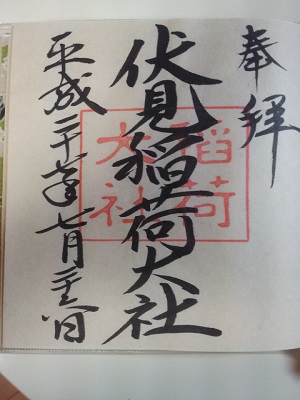 奉拝
伏見稲荷大社
稲荷
大社
平成二十六年七月二十六日